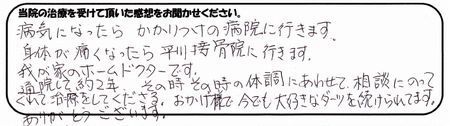 当院の治療を受けて頂いた感想をお聞かせください。
病気になったら かかりつけの病院に行きます。
身体が痛くなったら 平川接骨院に行きます。
我が家のホームドクターです。
通院して、約2年、その時その時の体調にあわせて、相談にのって
くれて治療をしてくださる。おかげ様で今でも大好きなダーツを続けられてます。
ありがとうございます。